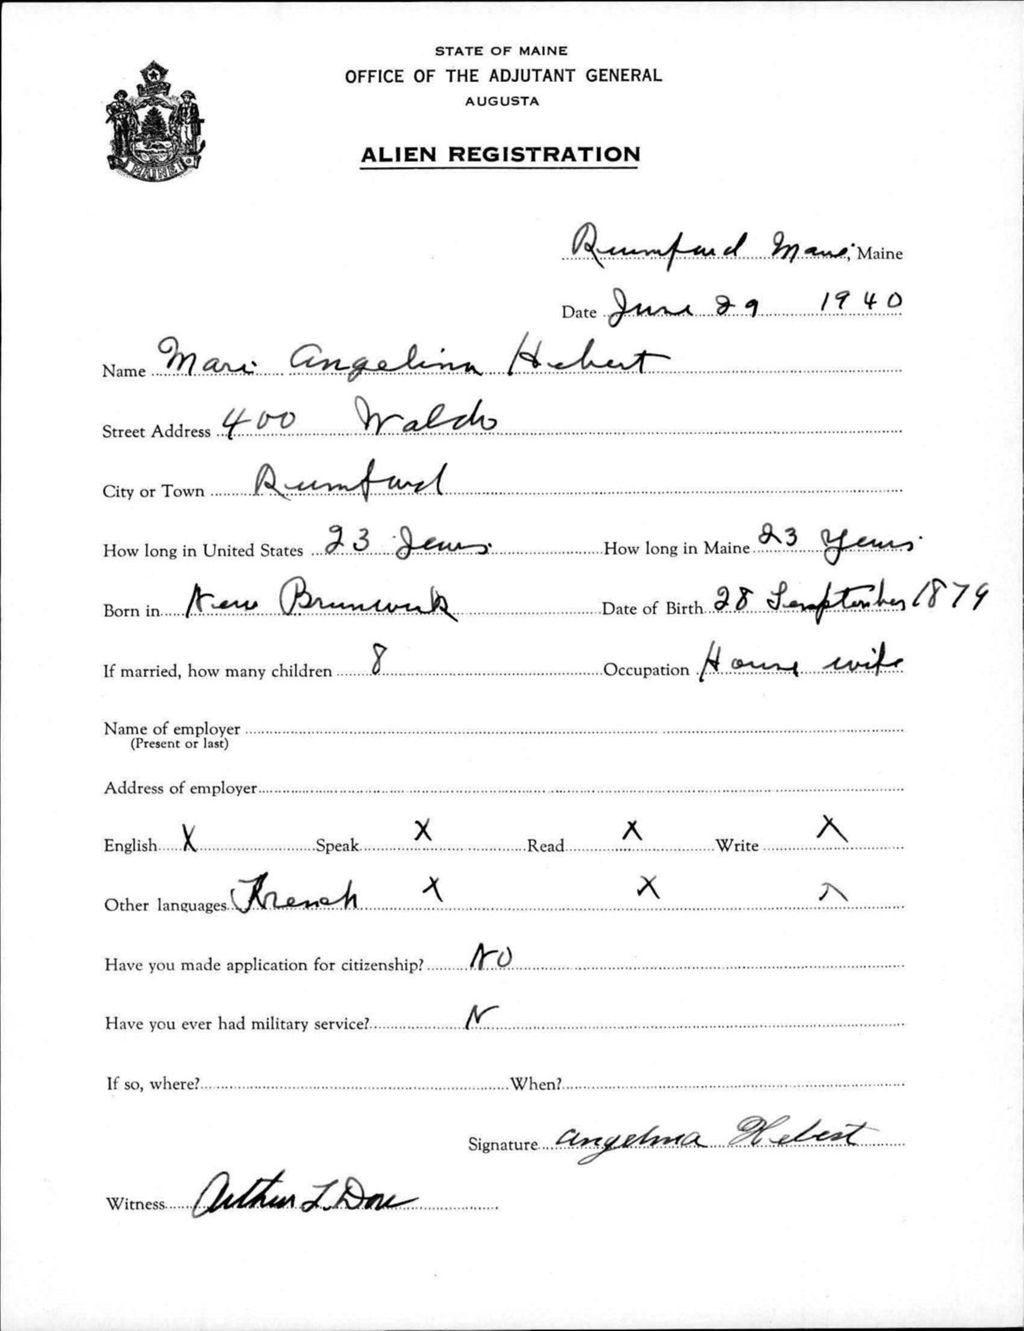 STATE OF MAINE
OFFICE OF THE ADJUTANT GENERAL
AUGUSTA
ALIEN REGISTRATION
MAINE
Rumford Maine, Maine
Date June 29 1940
Name Mari Angelina Hebert
Street Address 400 Waldo
City or Town Rumford
How long in United States 23 Years How long in Maine 23 Years
Born in New Brunswick Date of Birth 28 September 1879
If married, how many children 8 Occupation House wife
Name of employer
(Present or last)
Address of employer
English X Speak X Read X Write X
Other languages French X X X
Have you made application for citizenship? NO
Have you ever had military service? N
If so, where? When?
Signature Angelina Hebert
Witness Arthur L. Dore